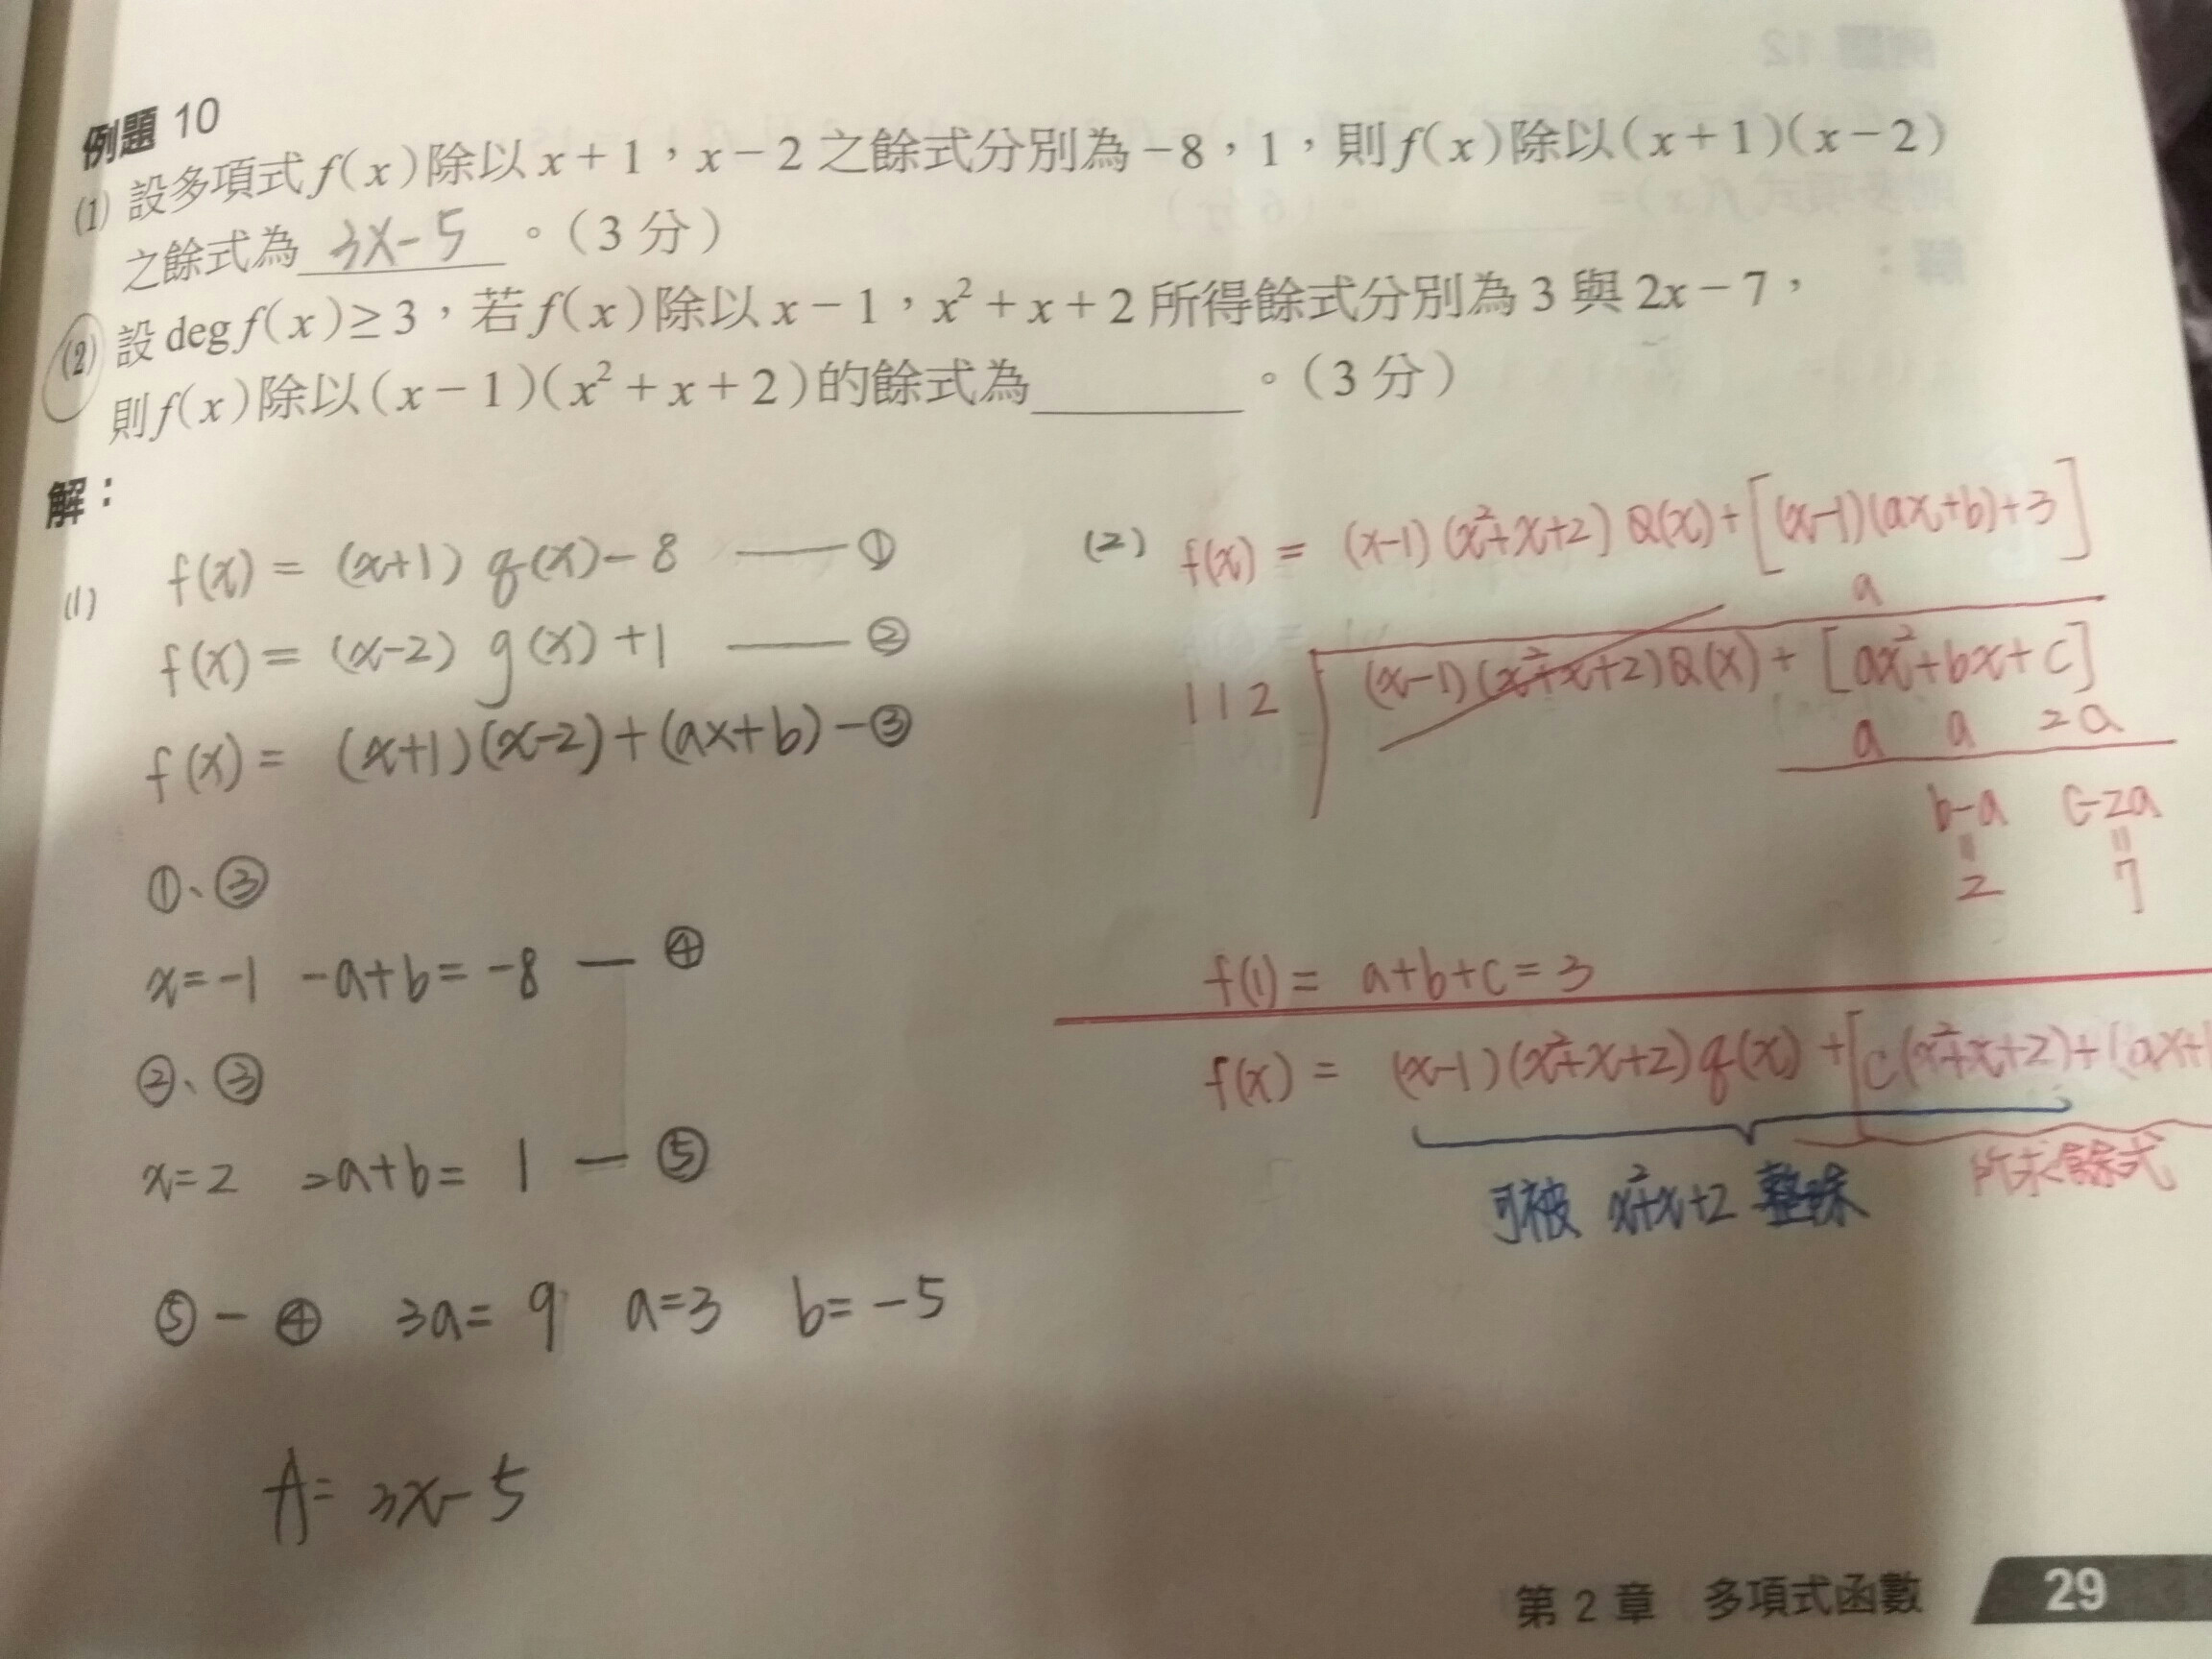 例題 10
(1) 設多項式 f(x) 除以 x+1，x−2 之餘式分別為 −8，1，則 f(x) 除以 (x+1)(x−2)
之餘式為 3x−5 。（3 分）
(2) 設 deg f(x) ≥ 3，若 f(x) 除以 x−1，x²+x+2 所得餘式分別為 3 與 2x−7，
則 f(x) 除以 (x−1)(x²+x+2) 的餘式為________。（3 分）
解：
(1) f(x) = (x+1) q(x) − 8 —— ①
f(x) = (x−2) g(x) + 1 —— ②
f(x) = (x+1)(x−2)+(ax+b) − ③
①、③
x=−1 −a+b=−8 — ④
②、③
x=2 2a+b= 1 — ⑤
⑤ − ④ 3a= 9 a=3 b=−5
A= 3x−5
(2) f(x) = (x−1)(x²+x+2) Q(x)+[(x−1)(ax+b)+3]
a
1 1 2 (x−1)(x²+x+2)Q(x)+[ax²+bx+c]
a a 2a
b−a c−2a
= =
2 7
f(1)= a+b+c=3
f(x) = (x−1)(x²+x+2)q(x)+[c(x²+x+2)+(ax+
可被 x²+x+2 整除
所求餘式
第 2 章 多項式函數 29